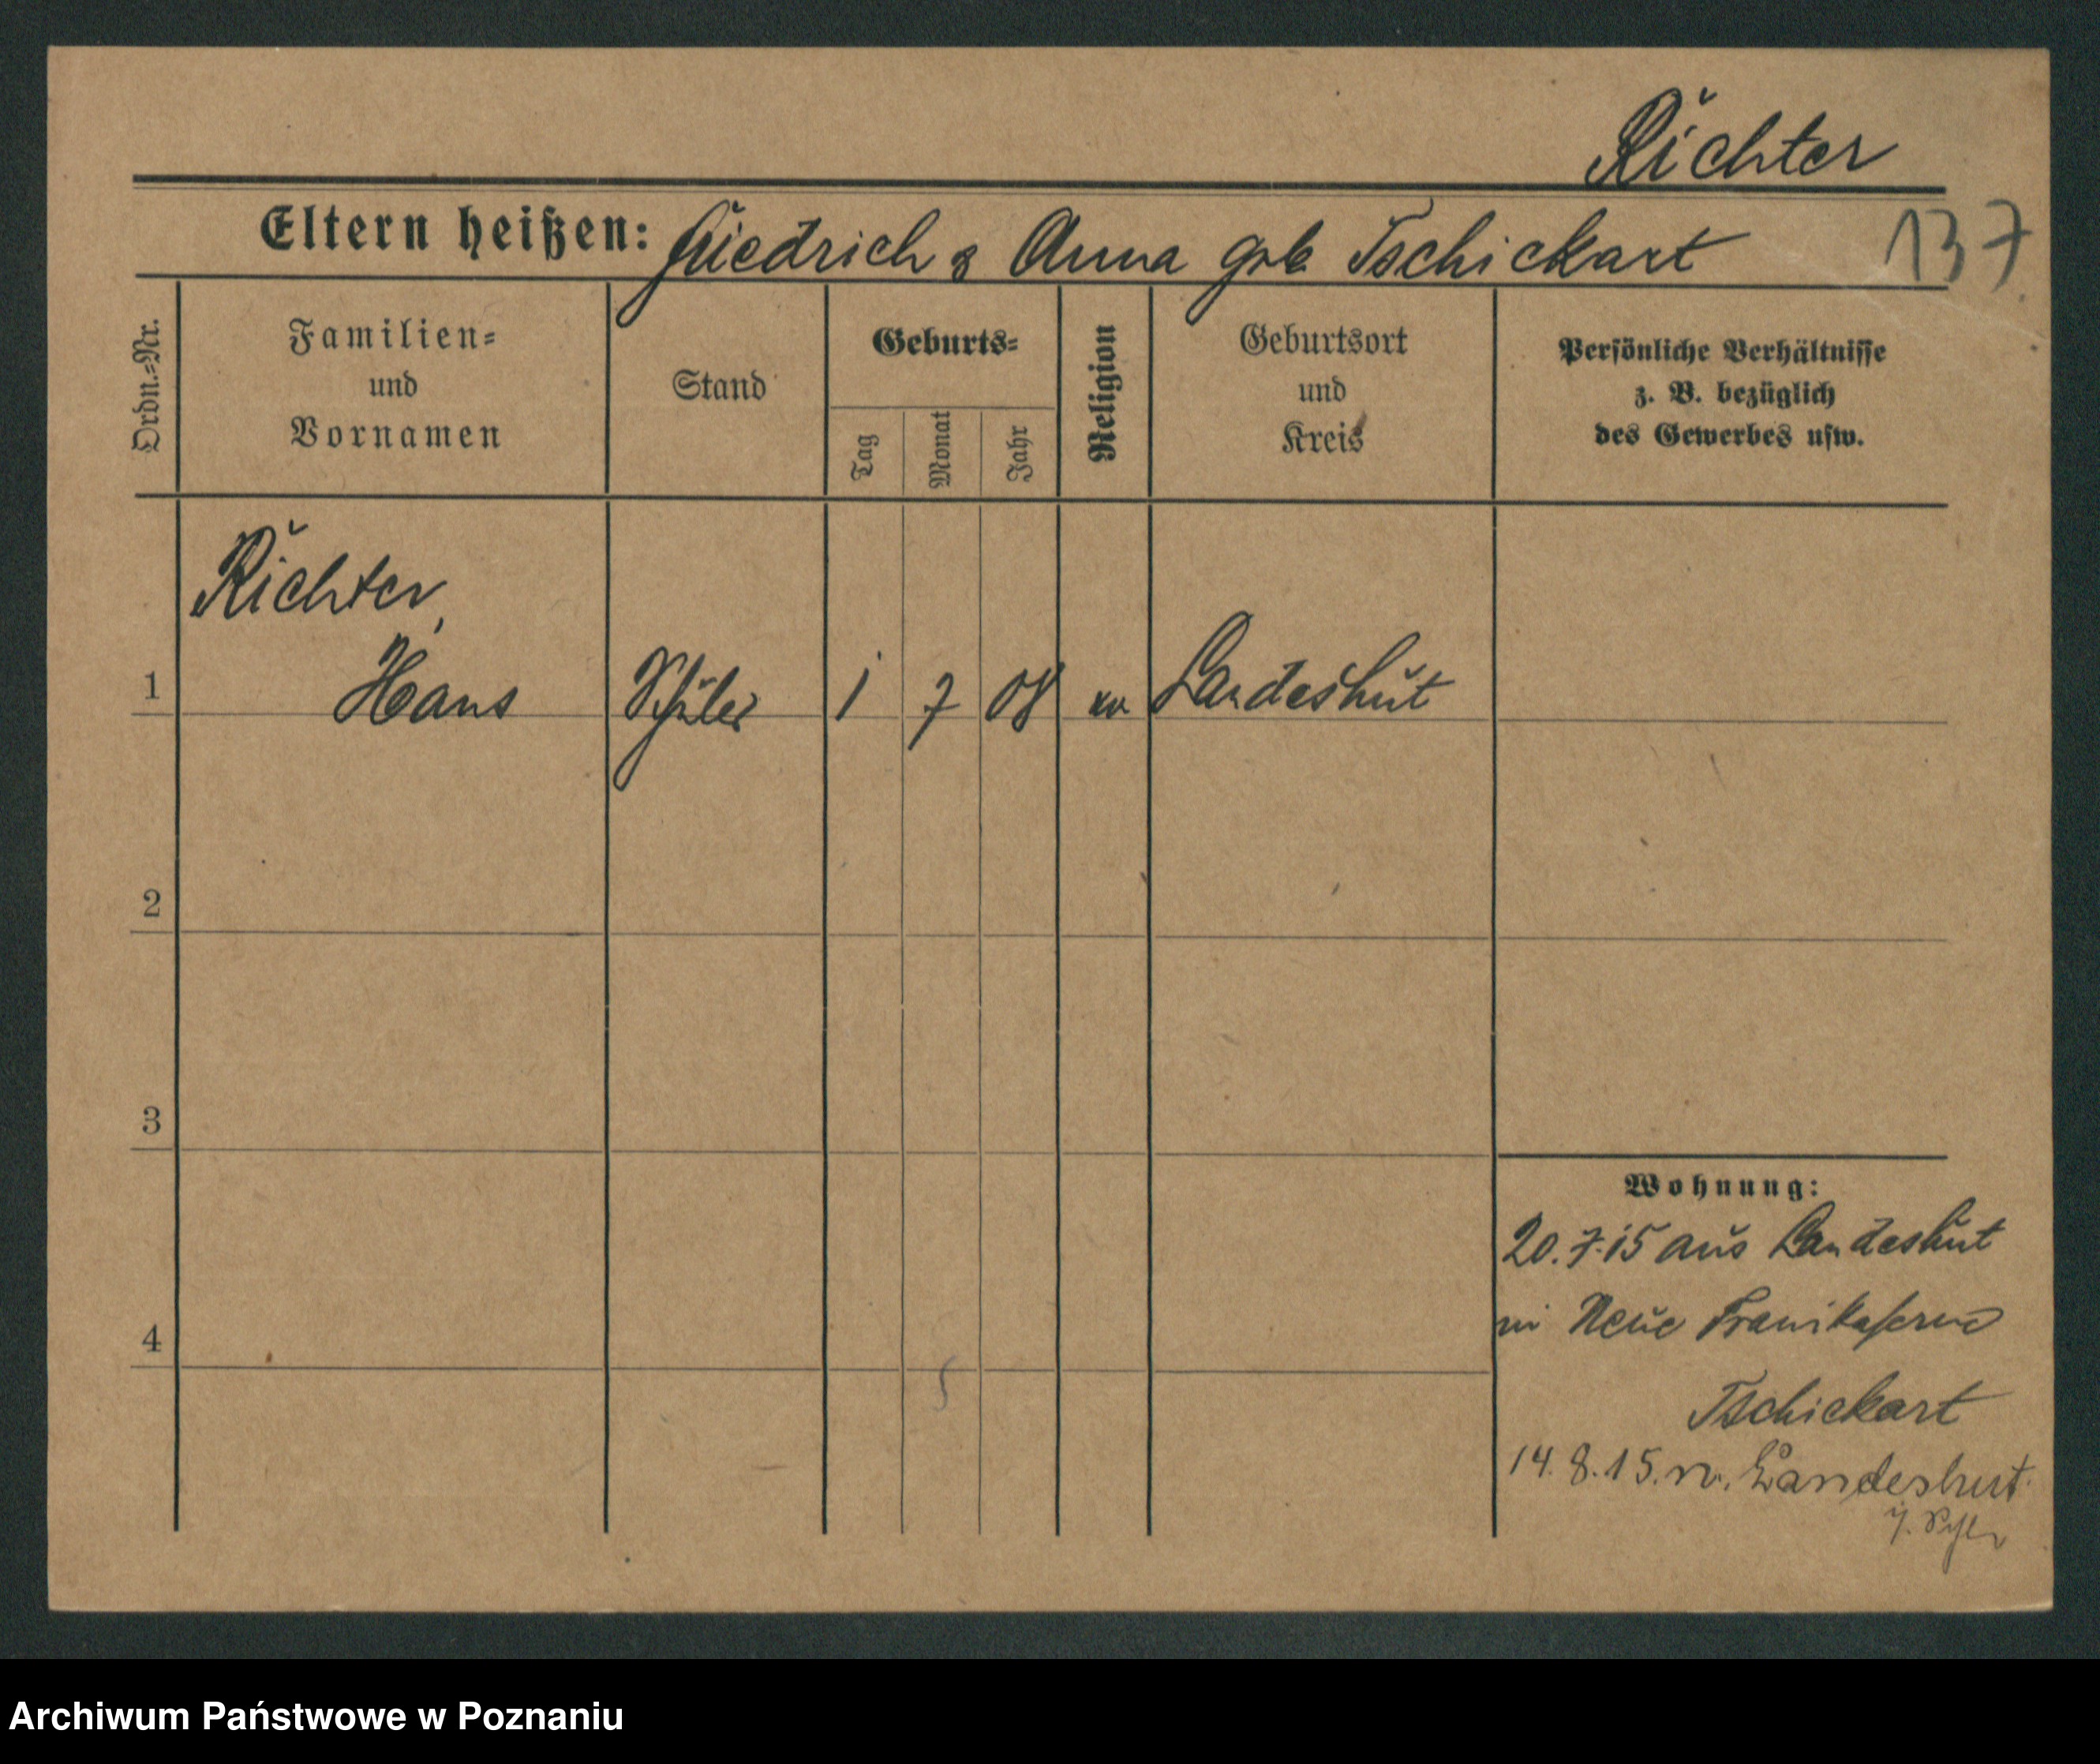 Richter
Eltern heißen: Friedrich & Anna geb Tschickart 137
Ordn.-Nr.
Familien-
und
Vornamen
Stand
Geburts-
Tag
Monat
Jahr
Religion
Geburtsort
und
Kreis
Persönliche Verhältnisse
z. B. bezüglich
des Gewerbes usw.
Richter,
1 Hans Schüler 1 7 08 ev Landeshut
2
3
4
Wohnung:
20.7.15 aus Landeshut
Neue
Tschickart
14.8.15. n. Landeshut
Archiwum Państwowe w Poznaniu